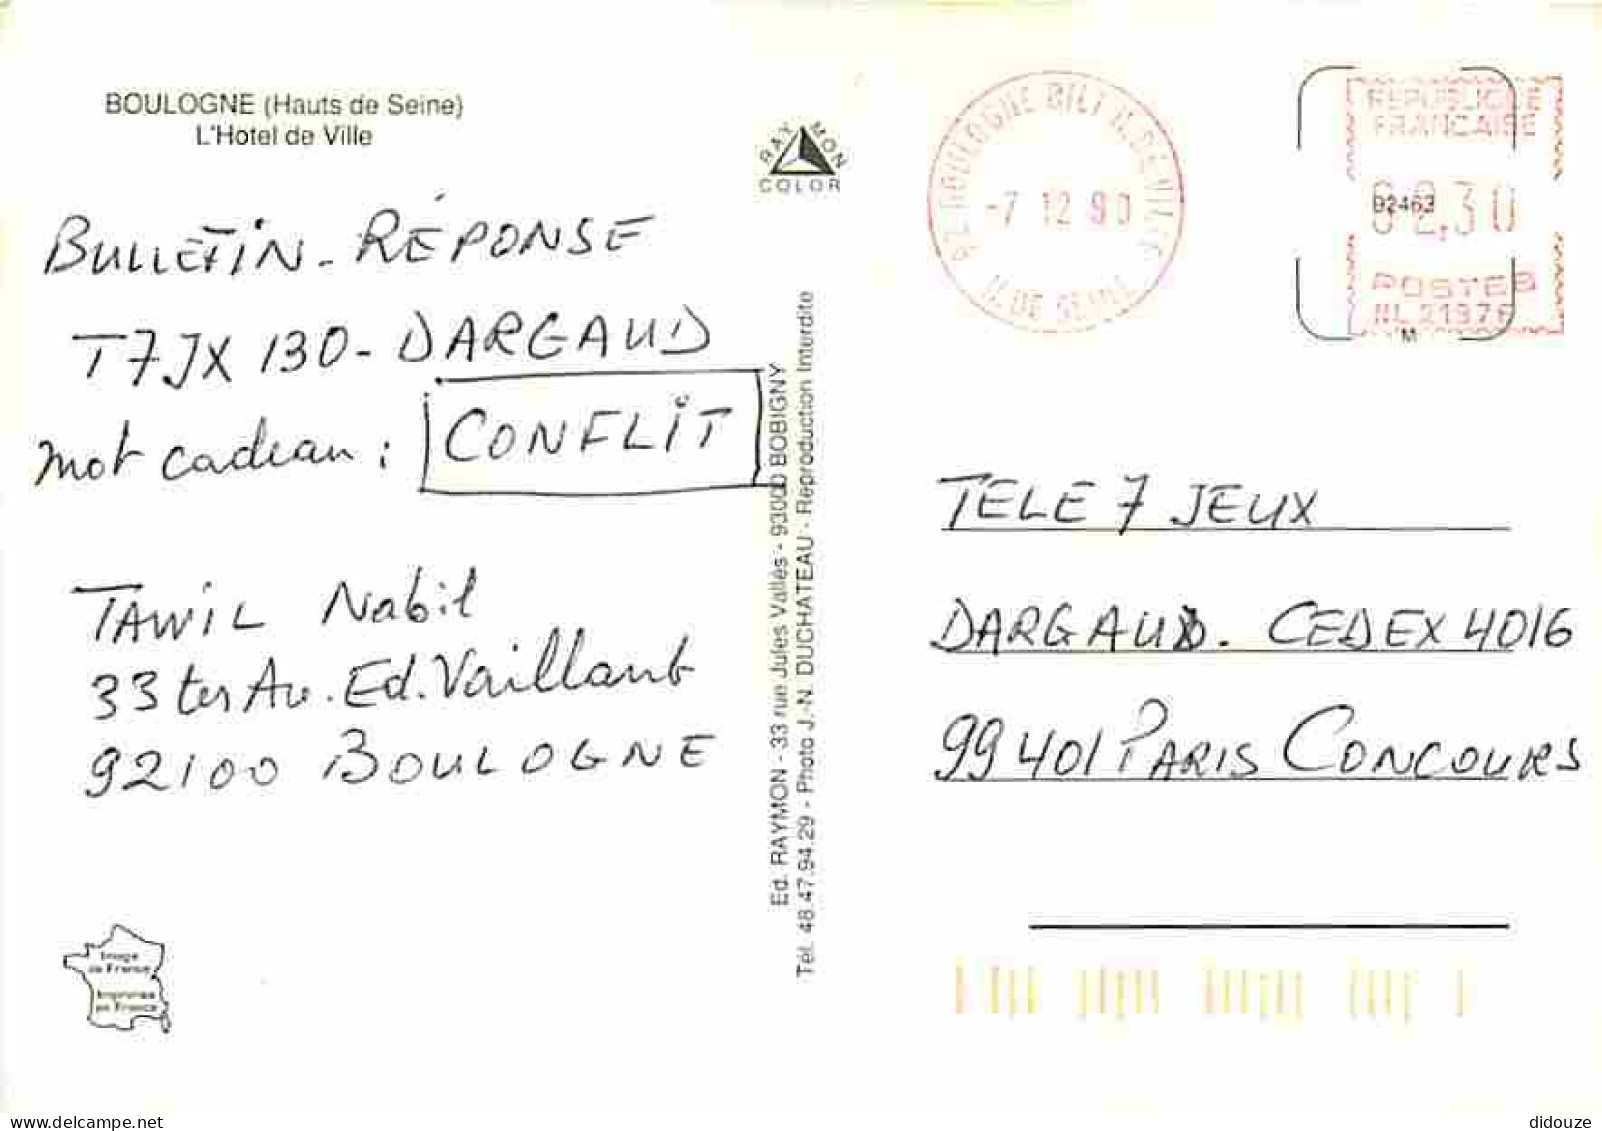 BOULOGNE (Hauts de Seine)
L'Hotel de Ville
RAYMON
COLOR
BULLETIN - RÉPONSE
T7JX 130 - DARGAUD
mot cadeau : CONFLIT
TAWIL Nabil
33 ter Av. Ed. Vaillant
92100 BOULOGNE
Image
de France
Imprimée
en France
Ed. RAYMON - 33 rue Jules Vallès - 93000 BOBIGNY
Tél. 48.47.94.29 - Photo J.-N. DUCHATEAU - Reproduction Interdite
BOULOGNE BILL
-7 12 90
H. DE SEINE
REPUBLIQUE
FRANCAISE
92463
02,30
POSTES
M
TELE 7 JEUX
DARGAUD. CEDEX 4016
99401 PARIS CONCOURS
didouze